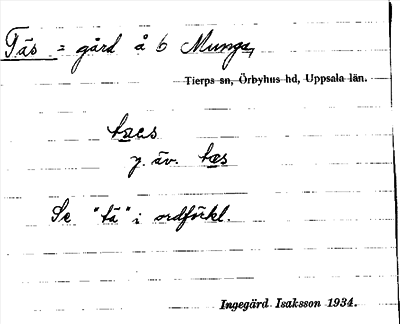 Täs = gård å b Munga,
Tierps sn, Örbyhus hd, Uppsala län.
tæs
y. äv. tæs
Se "tä" i ordförkl.
Ingegärd Isaksson 1934.